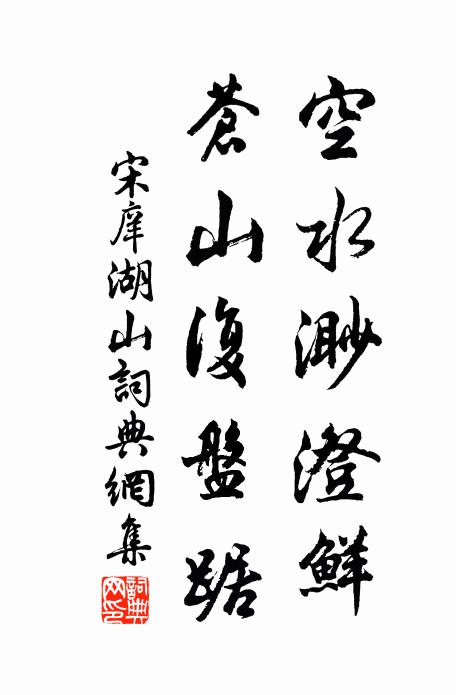 空水渺澄鮮
蒼山復盤踞
宋庠湖山詞典網集
詞典网印